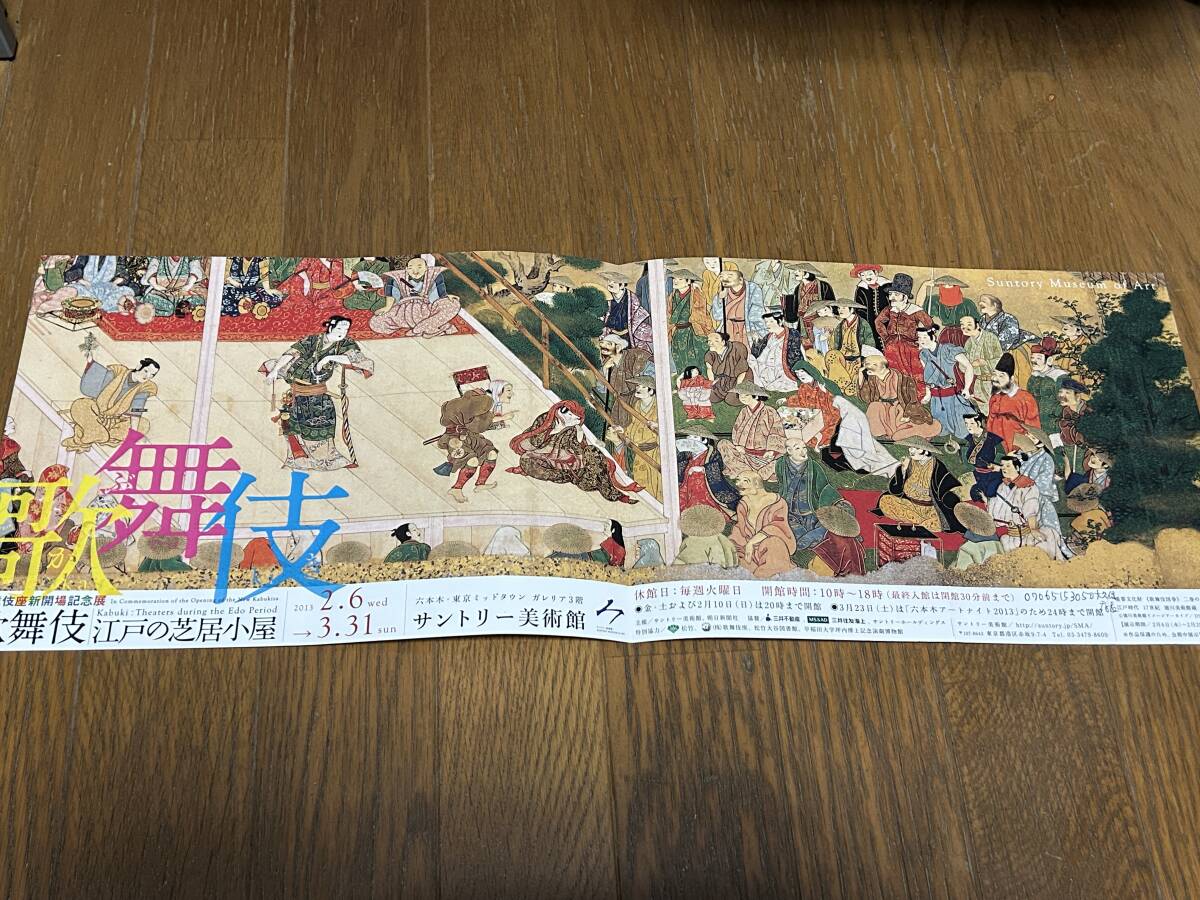 Suntory Museum of Art
歌舞伎
か ぶ き
伎座新開場記念展 In Commemoration of the Opening of the New Kabukiza
歌舞伎 Kabuki : Theaters during the Edo Period
江戸の芝居小屋
2013 2.6 wed
→ 3.31 sun
六本木・東京ミッドタウン ガレリア3階
サントリー美術館
休館日：毎週火曜日 開館時間：10時〜18時（最終入館は閉館30分前まで）
●金・土および2月10日（日）は20時まで開館 ●3月23日（土）は「六本木アートナイト2013」のため24時まで開館
主催／サントリー美術館、朝日新聞社 協賛／三井不動産 MS&AD 三井住友海上、サントリーホールディングス
特別協力／松竹、（株）歌舞伎座、松竹大谷図書館、早稲田大学坪内博士記念演劇博物館
サントリー美術館／http://suntory.jp/SMA/
東京都港区赤坂9-7-4 Tel. 03-3479-8600
重要文化財
江戸時代 17世紀